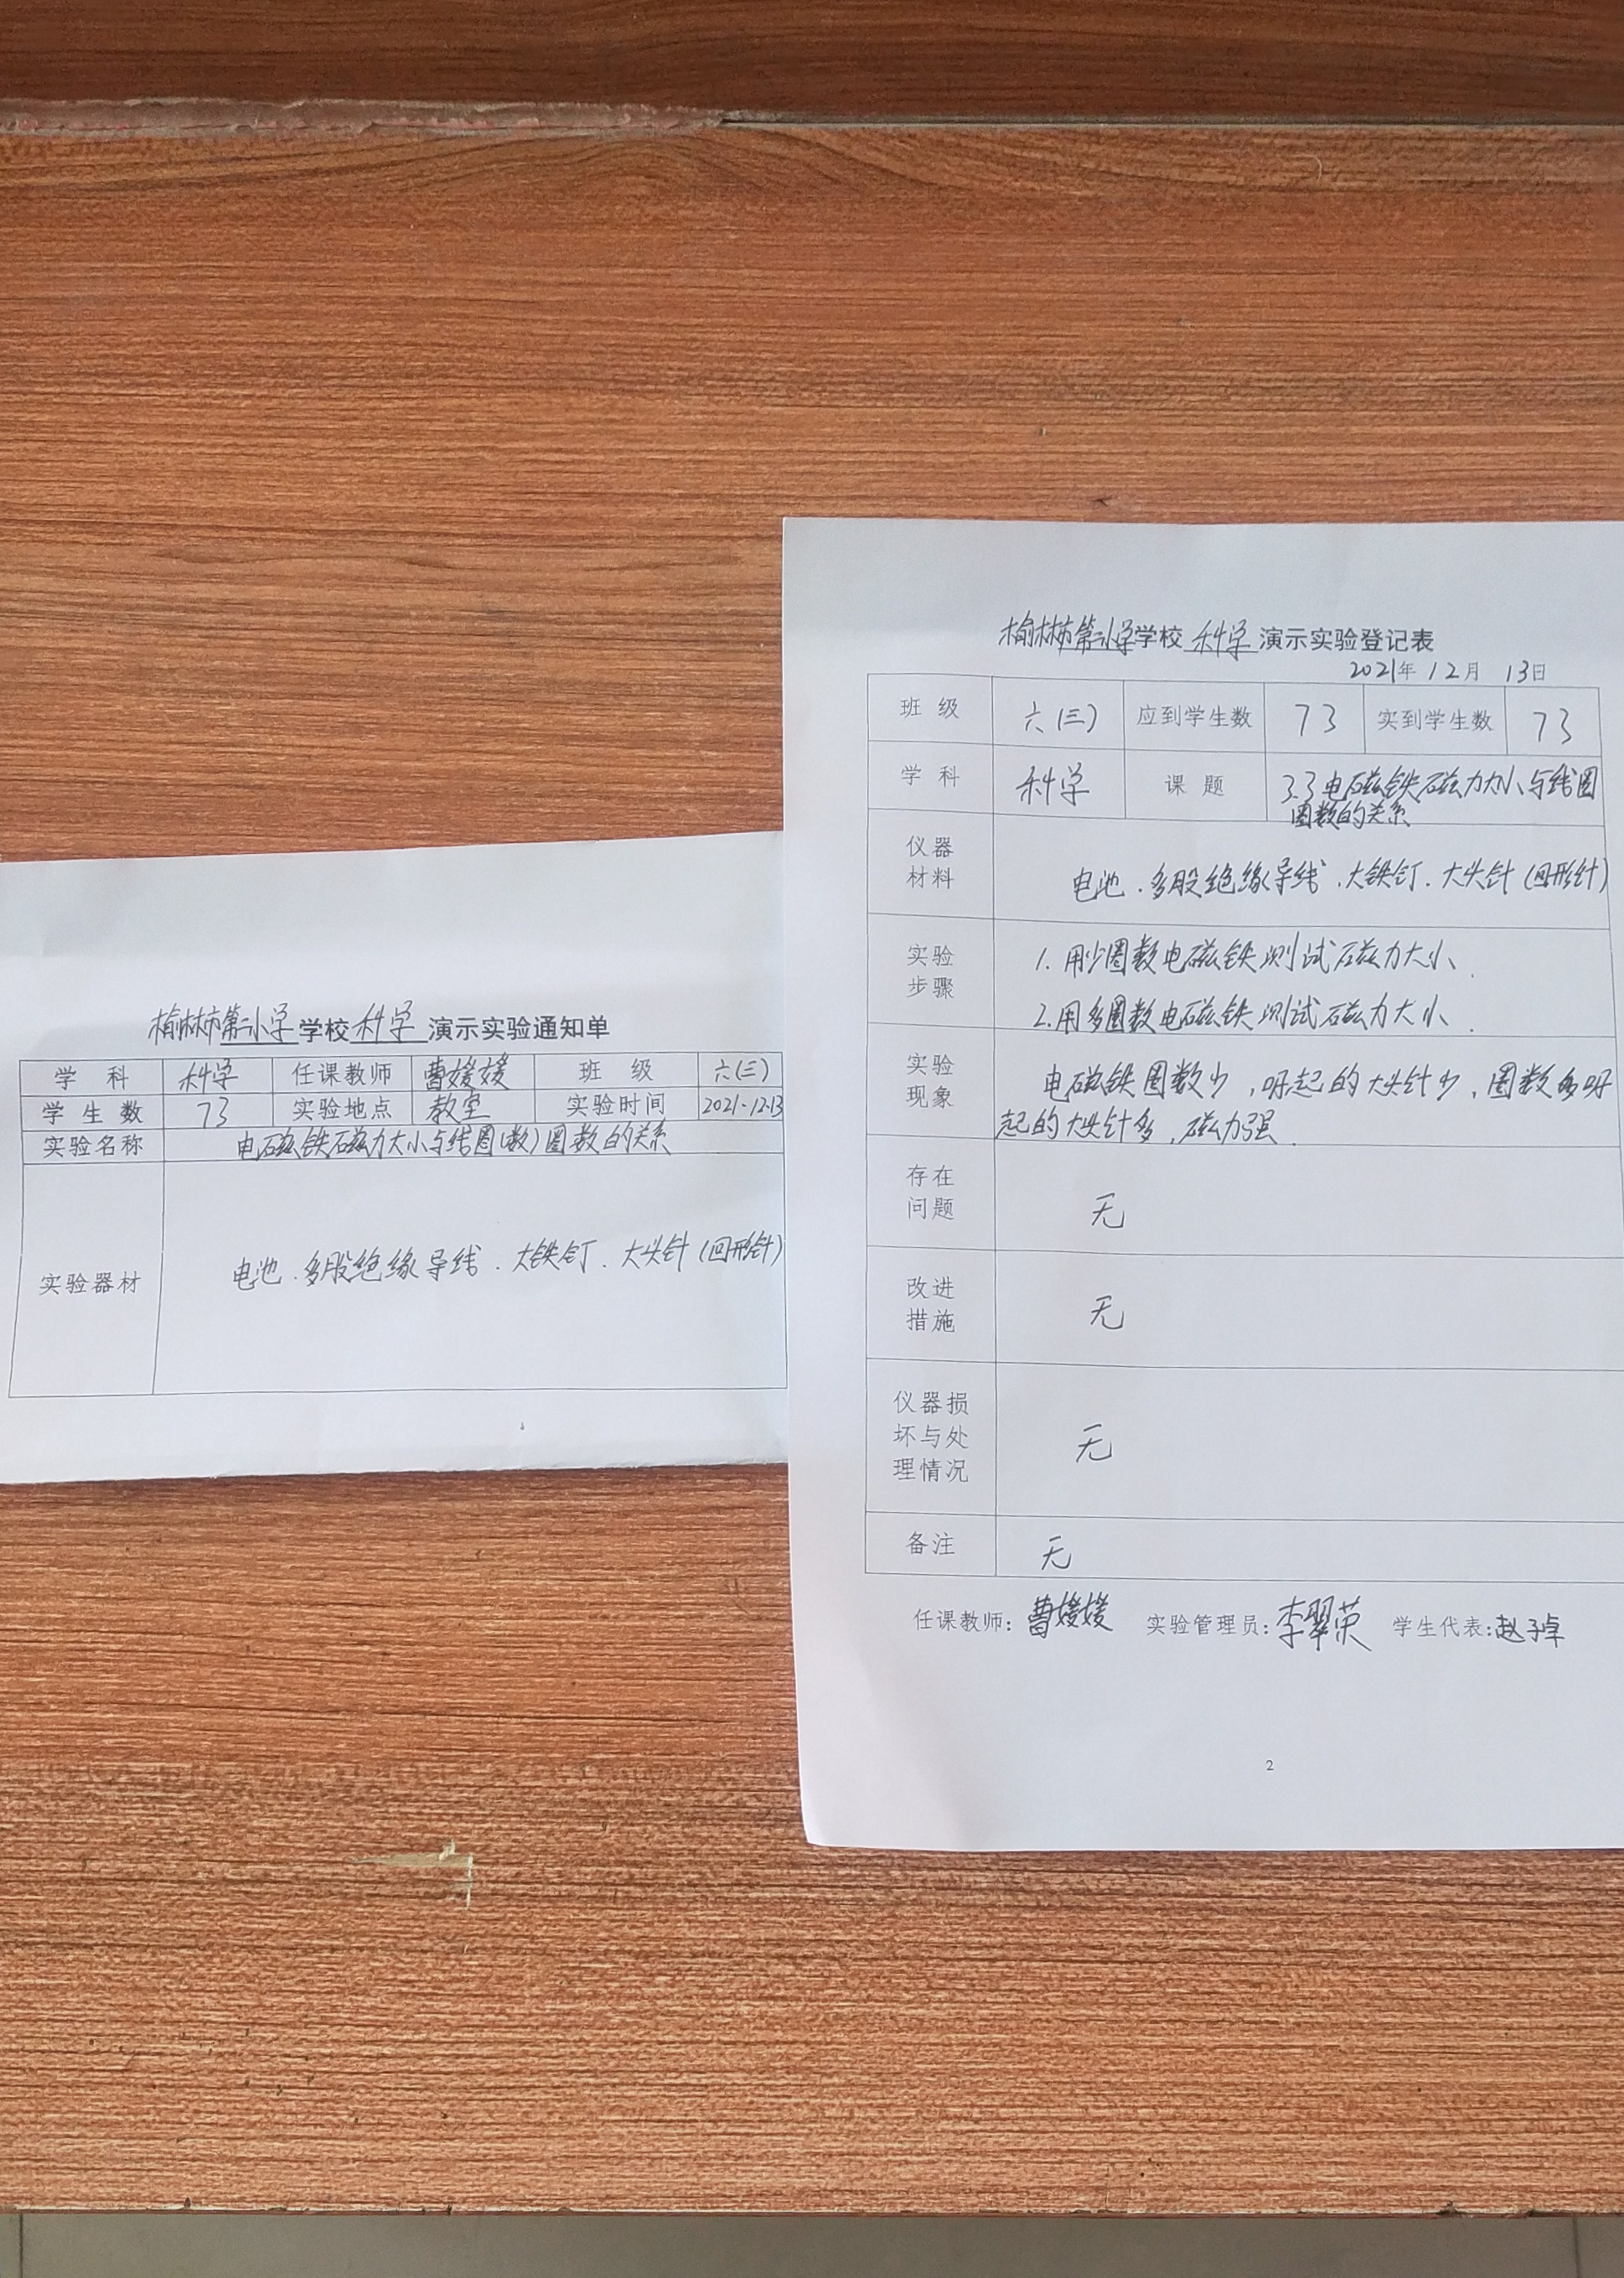 榆林市第二小学学校科学演示实验通知单
学科 科学 任课教师 曹媛媛 班级 六(三)
学生数 73 实验地点 教室 实验时间 2021.12.13
实验名称 电磁铁磁力大小与线圈(数)圈数的关系
实验器材 电池.多股绝缘导线.大铁钉.大头针(回形针)
榆林市第二小学学校科学演示实验登记表
2021年12月13日
班级 六(三) 应到学生数 73 实到学生数 73
学科 科学 课题 3.3电磁铁磁力大小与线圈
圈数的关系
仪器
材料
电池.多股绝缘导线.大铁钉.大头针(回形针)
实验
步骤
1.用少圈数电磁铁测试磁力大小.
2.用多圈数电磁铁测试磁力大小.
实验
现象
电磁铁圈数少,吸起的大头针少,圈数多吸
起的大头针多,磁力强.
存在
问题
无
改进
措施
无
仪器损
坏与处
理情况
无
备注 无
任课教师:曹媛媛 实验管理员:李翠英 学生代表:赵子卓
2